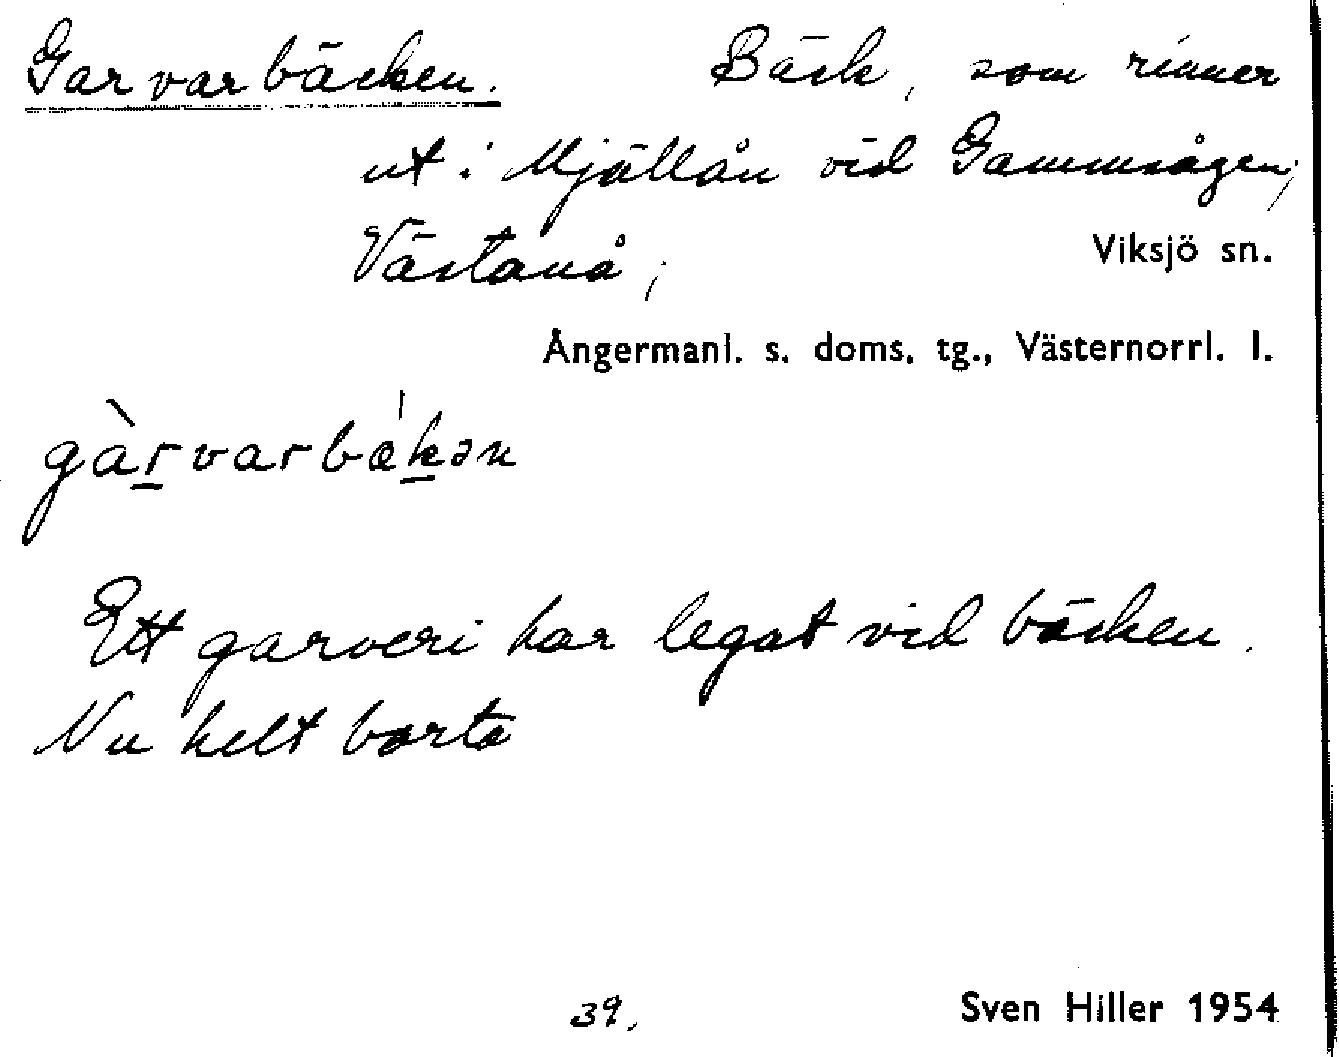 Garvarbäcken. Bäck, som rinner
ut i Mjällån vid Gammsågen,
Västanå,
Viksjö sn.
Ångermanl. s. doms. tg., Västernorrl. l.
gàrvarbækən
Ett garveri har legat vid bäcken.
Nu helt borta
39.
Sven Hiller 1954